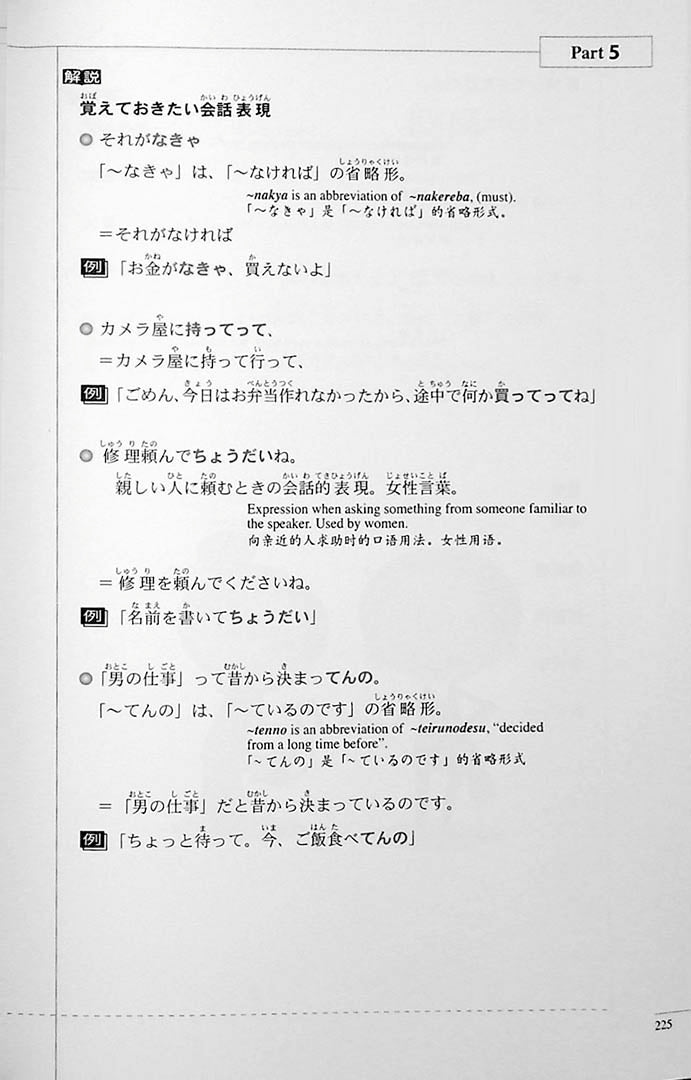 Part 5
解説
覚えておきたい会話表現
それがなきゃ
「～なきゃ」は、「～なければ」の省略形。
~nakya is an abbreviation of ~nakereba, (must).
「～なきゃ」是「～なければ」的省略形式。
＝それがなければ
例「お金がなきゃ、買えないよ」
カメラ屋に持ってって、
＝カメラ屋に持って行って、
例「ごめん、今日はお弁当作れなかったから、途中で何か買ってってね」
修理頼んでちょうだいね。
親しい人に頼むときの会話的表現。女性言葉。
Expression when asking something from someone familiar to
the speaker. Used by women.
向亲近的人求助时的口语用法。女性用语。
＝修理を頼んでくださいね。
例「名前を書いてちょうだい」
「男の仕事」って昔から決まってんの。
「～てんの」は、「～ているのです」の省略形。
~tenno is an abbreviation of ~teirunodesu, “decided
from a long time before”.
「～てんの」是「～ているのです」的省略形式
＝「男の仕事」だと昔から決まっているのです。
例「ちょっと待って。今、ご飯食べてんの」
225